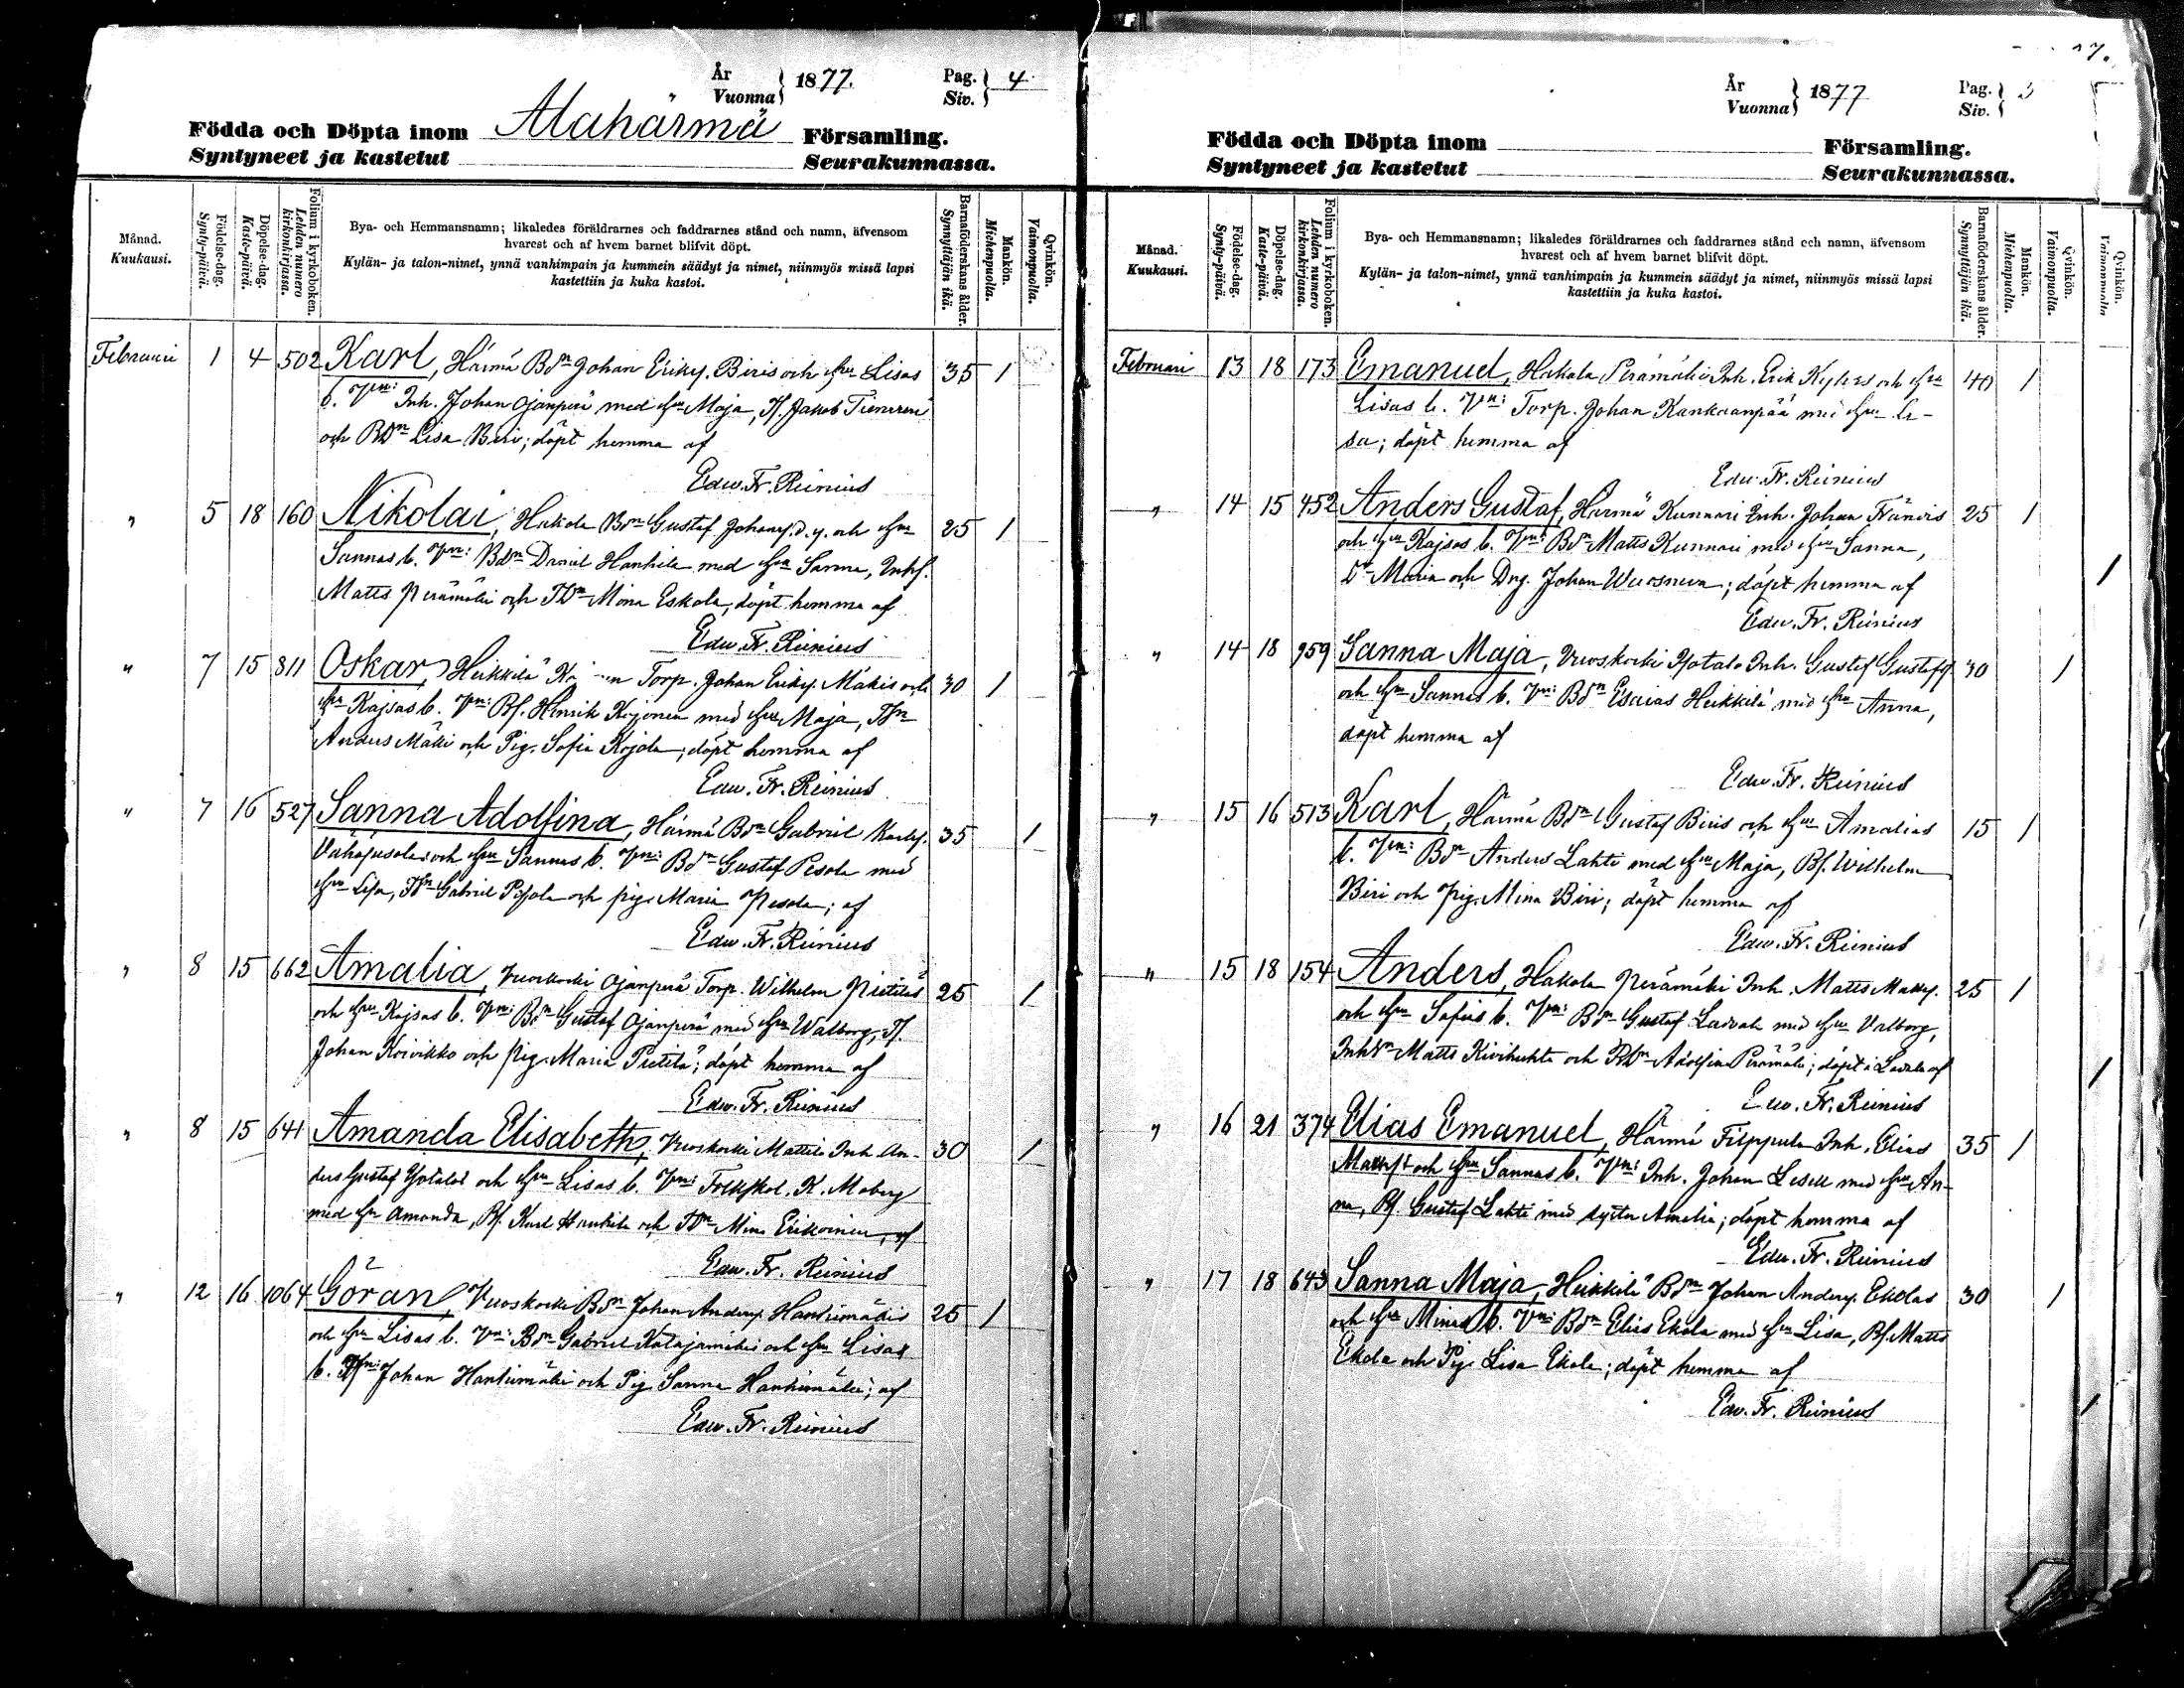 År
Vuonna } 1877.
Pag.
Siv. } 4
Födda och Döpta inom Alahärmä Församling.
Syntyneet ja kastetut Seurakunnassa.
Månad.
Kuukausi.
Födelse-dag.
Synty-päivä.
Döpelse-dag.
Kaste-päivä.
Folium i kyrkoboken.
Lehden numero
kirkonkirjassa.
Bya- och Hemmansnamn; likaledes föräldrarnes och faddrarnes stånd och namn, äfvensom
hvarest och af hvem barnet blifvit döpt.
Kylän- ja talon-nimet, ynnä vanhimpain ja kummein säädyt ja nimet, niinmyös missä lapsi
kastettiin ja kuka kastoi.
Barnaföderskans ålder.
Synnyttäjän ikä.
Mankön.
Miehenpuolta.
Qvinkön.
Vaimonpuolta.
Februari 1 4 502 Karl, Härmä Bdn Johan Eriks. Biris och Hru Lisas 35 1
b. Vn: Inh. Johan Ojanperä med Hru Maja,
och BDn Lisa Biri; döpt hemma af
Edw. Fr. Reinius
" 5 18 160 Nikolai, Hakola Bdn Gustaf Johans. d.y. och Hru 25 1
Sannas b. Vn: Bdn Daniel Hanhila med Hru Sanna, Inhs.
Matts Perämäki och TDn Mina Eskola, döpt hemma af
Edw. Fr. Reinius
" 7 15 811 Oskar, Heikkilä Torp. Johan Eriks. Mäkis och 30 1
Hru Kajsas b. Vn: Bs. Henrik Kojonen med Hru Maja,
Anders Mäki och Pig. Sofia Kojola; döpt hemma af
Edw. Fr. Reinius
" 7 16 527 Sanna Adolfina, Härmä Bdn Gabriel Karls. 35 1
och Hru Sannas b. Vn: Bdn Gustaf Pesola med
Hru Lisa, Gabriel Pesola och pig. Maria Pesola; af
Edw. Fr. Reinius
" 8 15 662 Amalia, Vuoskoski Ojanperä Torp. Wilhelm Pietiläs 25 1
och Hru Kajsas b. Vn: Bdn Gustaf Ojanperä med Hru Walborg,
Johan Koivikko och pig. Maria Pietilä; döpt hemma af
Edw. Fr. Reinius
" 8 15 641 Amanda Elisabeth, Vuoskoski Mattila Inh. An- 30 1
ders Gustaf och Hru Lisas b. Vn: Folkskol. K. Moberg
med Hru Amanda, Bs. Karl Hanhila och TDn Mina Erikoinen, af
Edw. Fr. Reinius
" 12 16 1064 Göran, Vuoskoski Bdn Johan Anders. Hantumäkis 25 1
och Hru Lisas b. Vn: Bdn Gabriel Katajamäki och Hru Lisas
b. Johan Hantumäki och Pig. Sanna Hantumäki; af
Edw. Fr. Reinius
17.
År
Vuonna } 1877
Pag.
Siv. }
Födda och Döpta inom Församling.
Syntyneet ja kastetut Seurakunnassa.
Månad.
Kuukausi.
Födelse-dag.
Synty-päivä.
Döpelse-dag.
Kaste-päivä.
Folium i kyrkoboken.
Lehden numero
kirkonkirjassa.
Bya- och Hemmansnamn; likaledes föräldrarnes och faddrarnes stånd och namn, äfvensom
hvarest och af hvem barnet blifvit döpt.
Kylän- ja talon-nimet, ynnä vanhimpain ja kummein säädyt ja nimet, niinmyös missä lapsi
kastettiin ja kuka kastoi.
Barnaföderskans ålder.
Synnyttäjän ikä.
Mankön.
Miehenpuolta.
Qvinkön.
Vaimonpuolta.
Qvinkön.
Vaimonpuolta
Februari 13 18 173 Emanuel, Hakola Perämäki Inh. Erik och Hru 40 1
Lisas b. Vn: Torp. Johan Kankaanpää med Hru Li-
sa; döpt hemma af
Edw. Fr. Reinius
" 14 15 452 Anders Gustaf, Härmä Kunnari Inh. Johan 25 1
och Hru Kajsas b. Vn: Bdn Matts Kunnari med Hru Sanna,
Dn Maria och Dng. Johan; döpt hemma af
Edw. Fr. Reinius
" 14 18 959 Sanna Maja, Vuoskoski Inh. Gustaf Gustafs. 30 1
och Hru Sannas b. Vn: Bdn Esaias Heikkilä med Hru Anna,
döpt hemma af
Edw. Fr. Reinius
" 15 16 513 Karl, Härmä Bdn Gustaf Biris och Hru Amalias 15 1
b. Vn: Bdn Anders Lahti med Hru Maja, Bs. Wilhelm
Biri och pig. Mina Biri; döpt hemma af
Edw. Fr. Reinius
" 15 18 154 Anders, Hakola Perämäki Inh. Matts Matts. 25 1
och Hru Sofias b. Vn: Bdn Gustaf Latvala med Hru Valborg,
Matts Kivihuhta och Adolfina Perämäki; döpt i af
Edw. Fr. Reinius
" 16 21 374 Elias Emanuel, Härmä Filppula Inh. Elias 35 1
och Hru Sannas b. Vn: Inh. Johan Lesell med Hru An-
na, Bs. Gustaf Lahti med syster Amalia; döpt hemma af
Edw. Fr. Reinius
" 17 18 643 Sanna Maja, Heikkilä Bdn Johan Anders. Ekolas 30 1
och Hru Minas b. Vn: Bdn Elias Ekola med Hru Lisa, Bs. Matts
Ekola och Pig. Lisa Ekola; döpt hemma af
Edw. Fr. Reinius